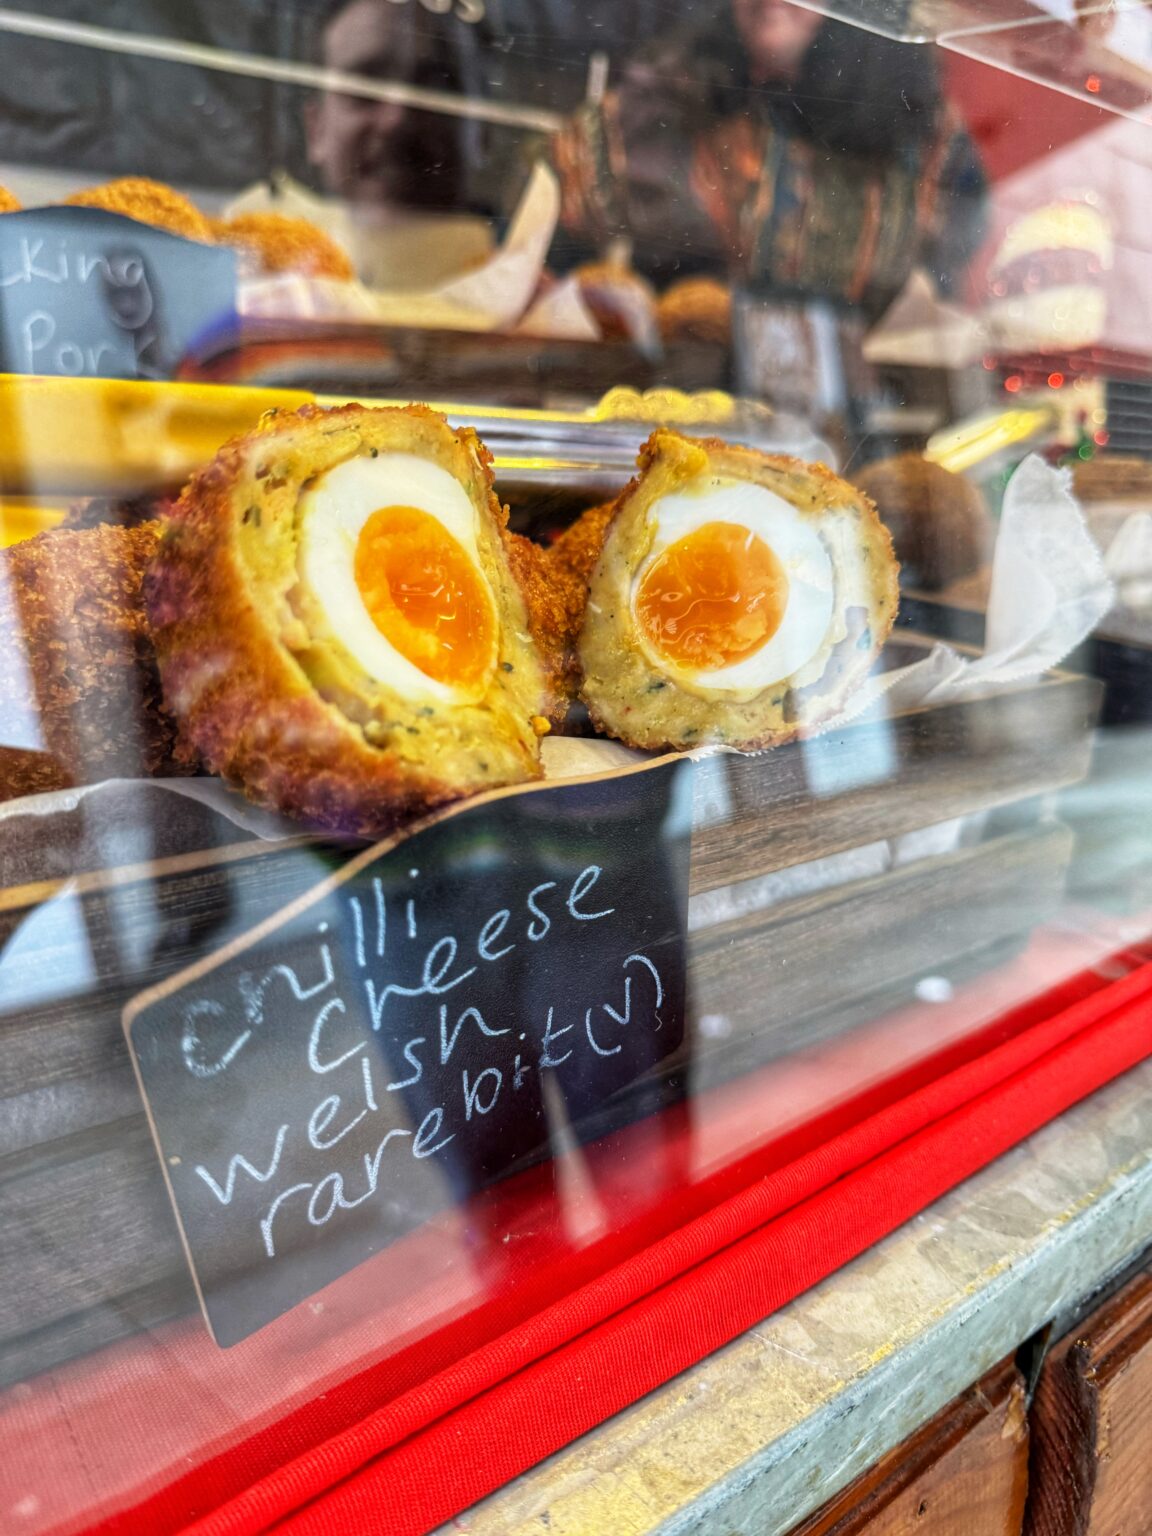 King
Pork
Chilli
Cheese
welsh
rarebit (v)